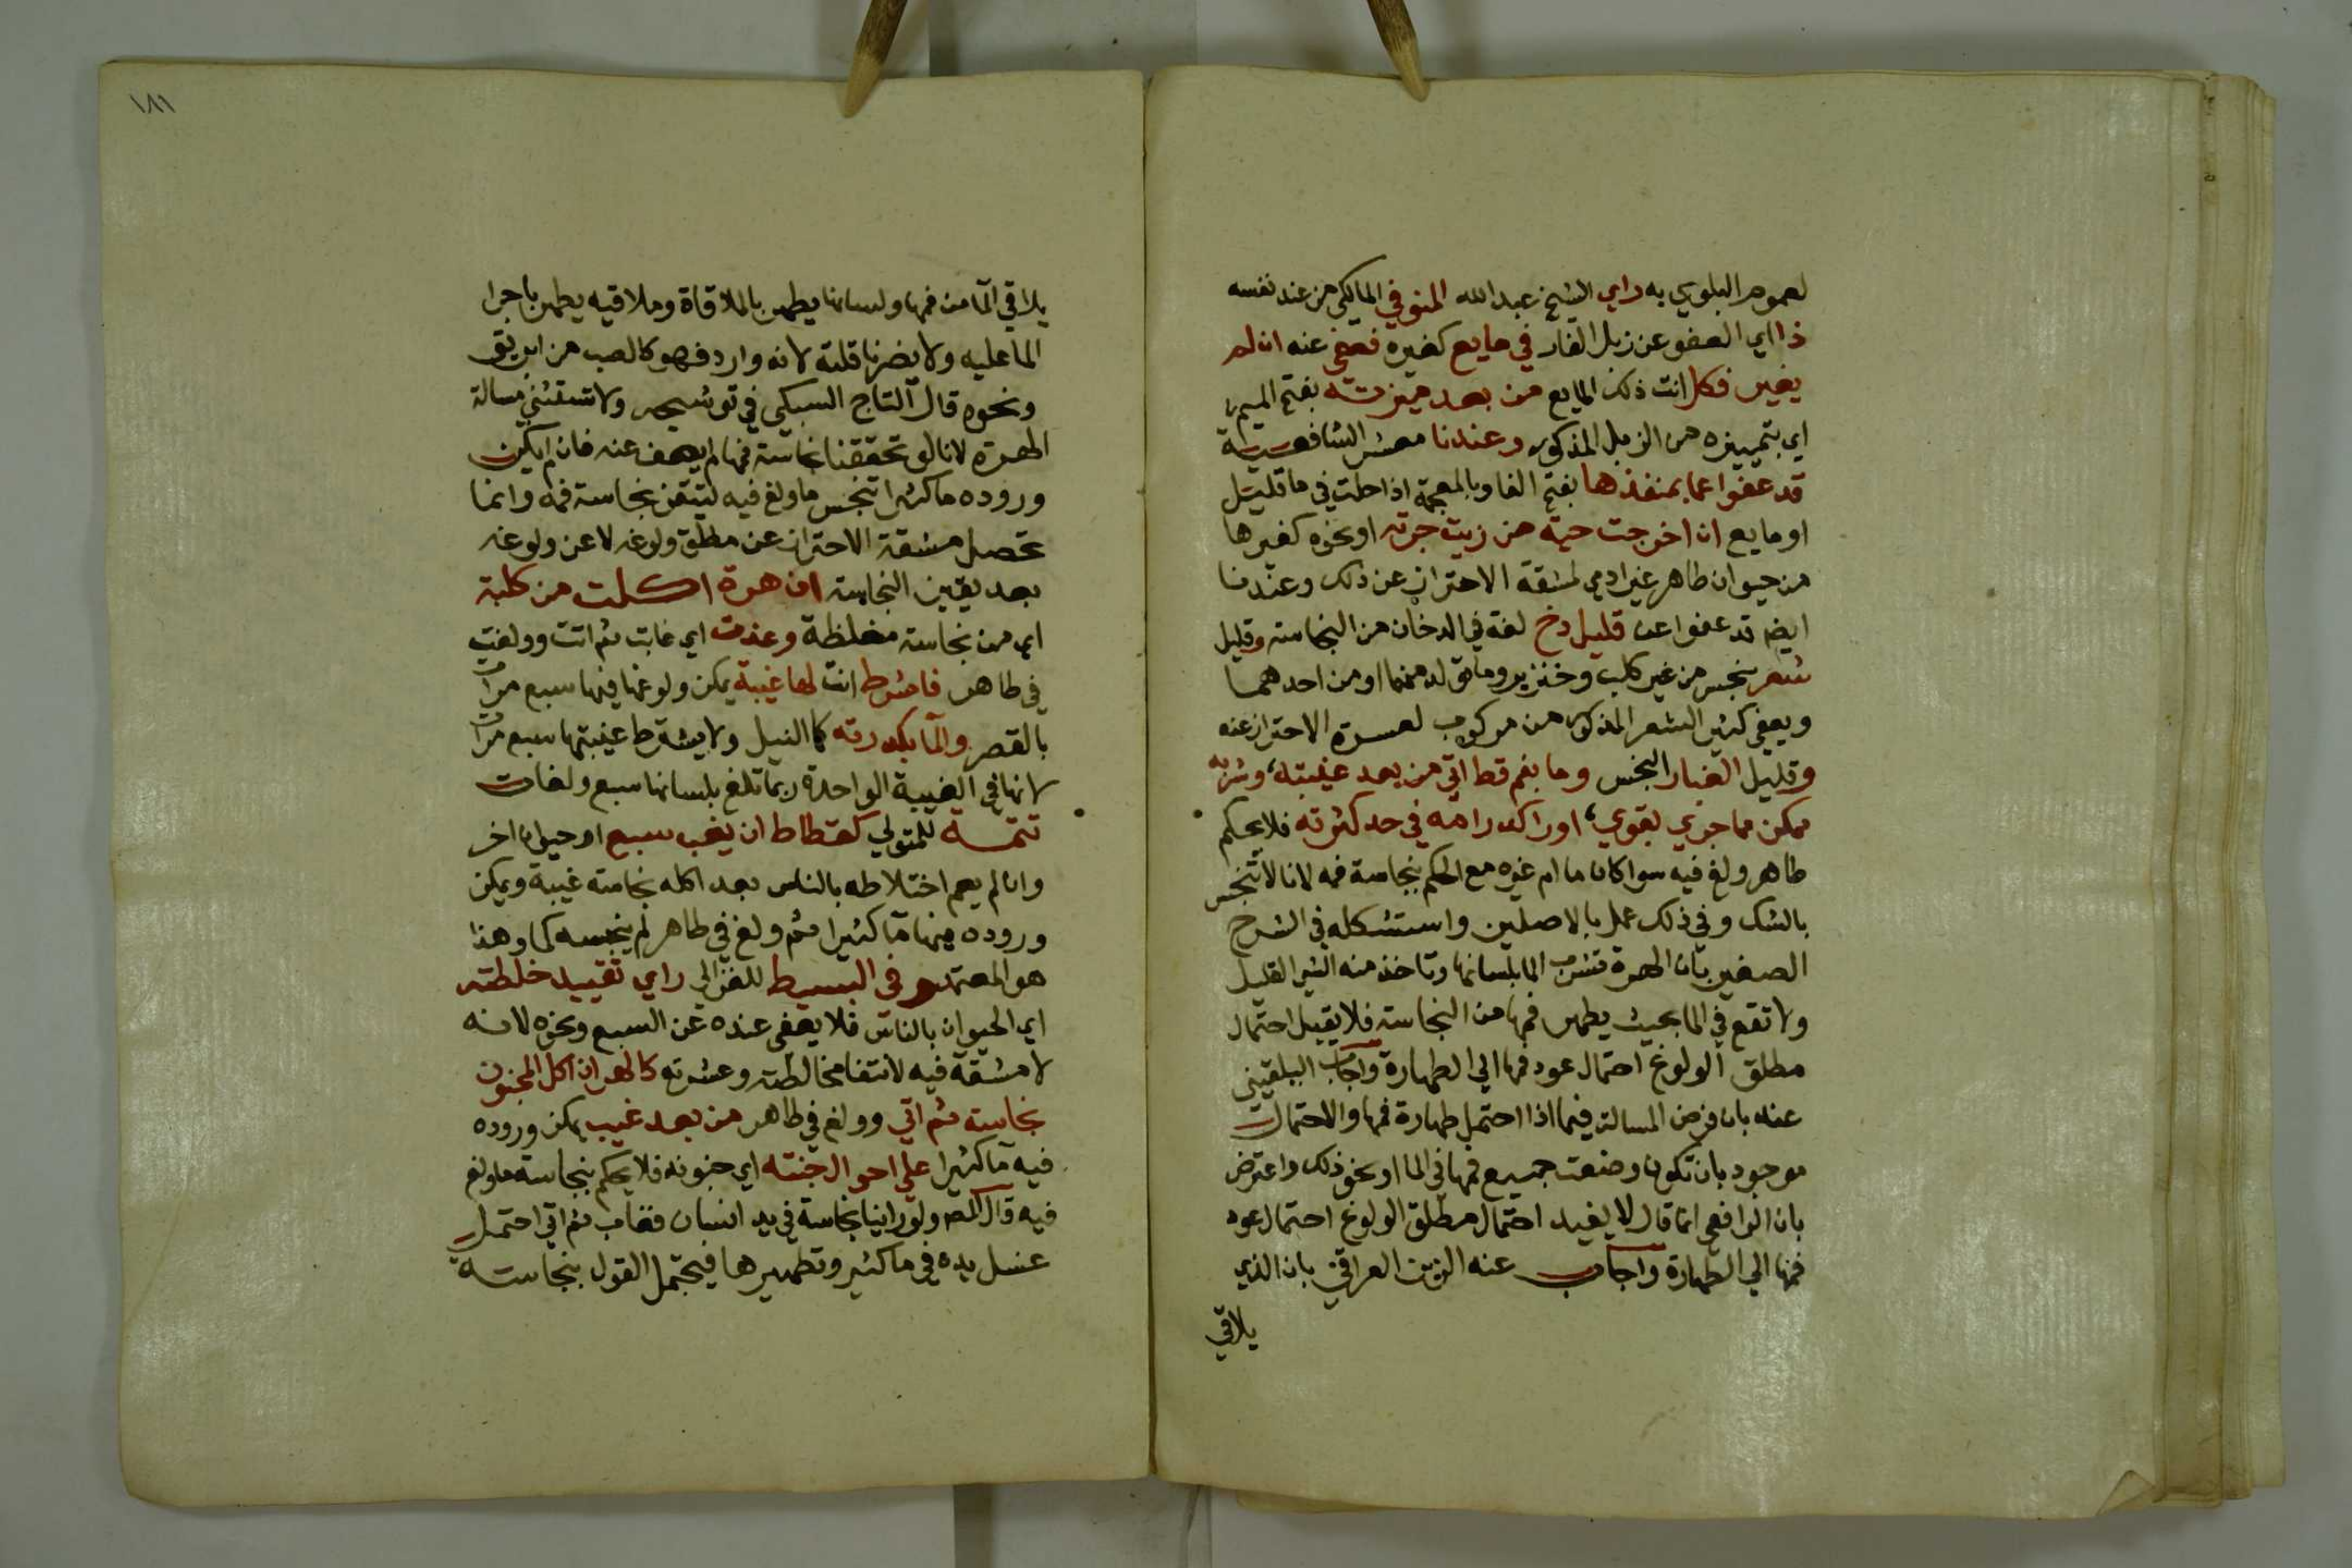 لعموم البلوي به راي الشيخ عبدالله المنوفي المالكي من عند نفسه
ذا اي العفو عن زبل الفار في مايع كغيره فعفي عنه ان لم
يغير فكل انت ذلك المايع من بعد ميزته بفتح الميم
اي بتمييزه من الزبل المذكور وعندنا معشر الشافعية
قد عفوا عما بمنفذها بفتح الفا وبالمعجمة اذا حلت في ما قليل
او مايع ان اخرجت حية من زيت جرته او نحوه كغيرها
من حيوان طاهر غير ادمي لمشقة الاحتراز عن ذلك وعندنا
ايضم قد عفوا عن قليل دخ لغة في الدخان من النجاسته وقليل
شعر نجس من غير كلب وخنزير وما تولد منهما او من احدهما
ويعفي كثير الشعر المذكور من مركوب لعسرة الاحتراز عنه
وقليل الغبار النجس وما بفم قط اتي من بعد غيبته، وشربه
ممكن مما جري بقوي، او راكد رامه في حد كثرته فلا يحكم
طاهر ولغ فيه سوا كان ما ام غيره مع الحكم بنجاسة فمه لانا لا ننجس
بالشك وفي ذلك عمل بالاصلين واستشكله في الشرح
الصغير بان الهرة تشرب الما بلسانها وتاخذ منه الشي القليل
ولا تقع في الما بحيث يطهر فمها من النجاسته فلا يقبل احتمال
مطلق الولوغ احتمال عود فمها الي الطهارة واجاب البلقيني
عنه بان فرض المسالة فيما اذا احتمل طهارة فمها والاحتمال
موجود بان تكون وضعت جميع فمها في الما او نحو ذلك واعترض
بان الرافعي انما قال لا يفيد احتمال مطلق الولوغ احتمال عود
فمها الي الطهارة واجاب عنه الزين العراقي بان الذي
يلاقي
١٨١
يلاقي الما من فمها ولسانها يطهر بالملاقاة وملاقيه يطهر باجرا
الما عليه ولا يضرنا قلته لانه وارد فهو كالصب من ابريق
ونحوه قال التاج السبكي في توشيحه ولا تستثني مسالة
الهرة لانا لو تحققنا نجاسة فمها لم يعف عنه فان لم يكن
وروده ما كثيرا تنجس ما ولغ فيه لتيقن نجاسة فمه وانما
تحصل مشقة الاحتراز عن مطلق ولوغه لا عن ولوغه
بعد يقين النجاسته ان هرة اكلت من كلبة
اي من نجاسته مغلظة وعدت اي غابت ثم اتت وولغت
في طاهر فاشرط انت لها غيبة يمكن ولوغها فيها سبع مرات
بالقصر والما بكدرته كما النيل ولا يشترط غيبتها سبع مرات
لانها في الغيبة الواحدة ربما تلغ بلسانها سبع ولغات
تتمة للمتولي كقطاط ان يغب سبع او حيوان اخر
وان لم يعم اختلاطه بالناس بعد اكله نجاسته غيبة ويمكن
وروده فيها ما كثيرا ثم ولغ في طاهر لم ينجسه كما وهذا
هو المعتمد وفي البسيط للغزالي راي تقييد خلطته
اي الحيوان بالناس فلا يعفي عنده عن السبع ونحوه لانه
لا مشقة فيه لانتفا مخالطته وعشرته كالهر ان اكل المجنون
نجاسته ثم اتي وولغ في طاهر من بعد غيب يمكن وروده
فيه ما كثيرا علي احوال جنته اي جنونه فلا يحكم بنجاسة ما ولغ
فيه قال المص ولو راينا نجاسة في يد انسان فغاب ثم اتي احتمل
غسل يده في ما كثير وتطهيرها فيحتمل القول بنجاسته